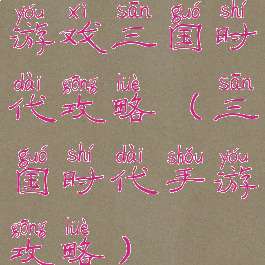 yóu xì sān guó shí
游戏三国时
dài gōng lüè sān
代攻略（三
guó shí dài shǒu yóu
国时代手游
gōng lüè
攻略）